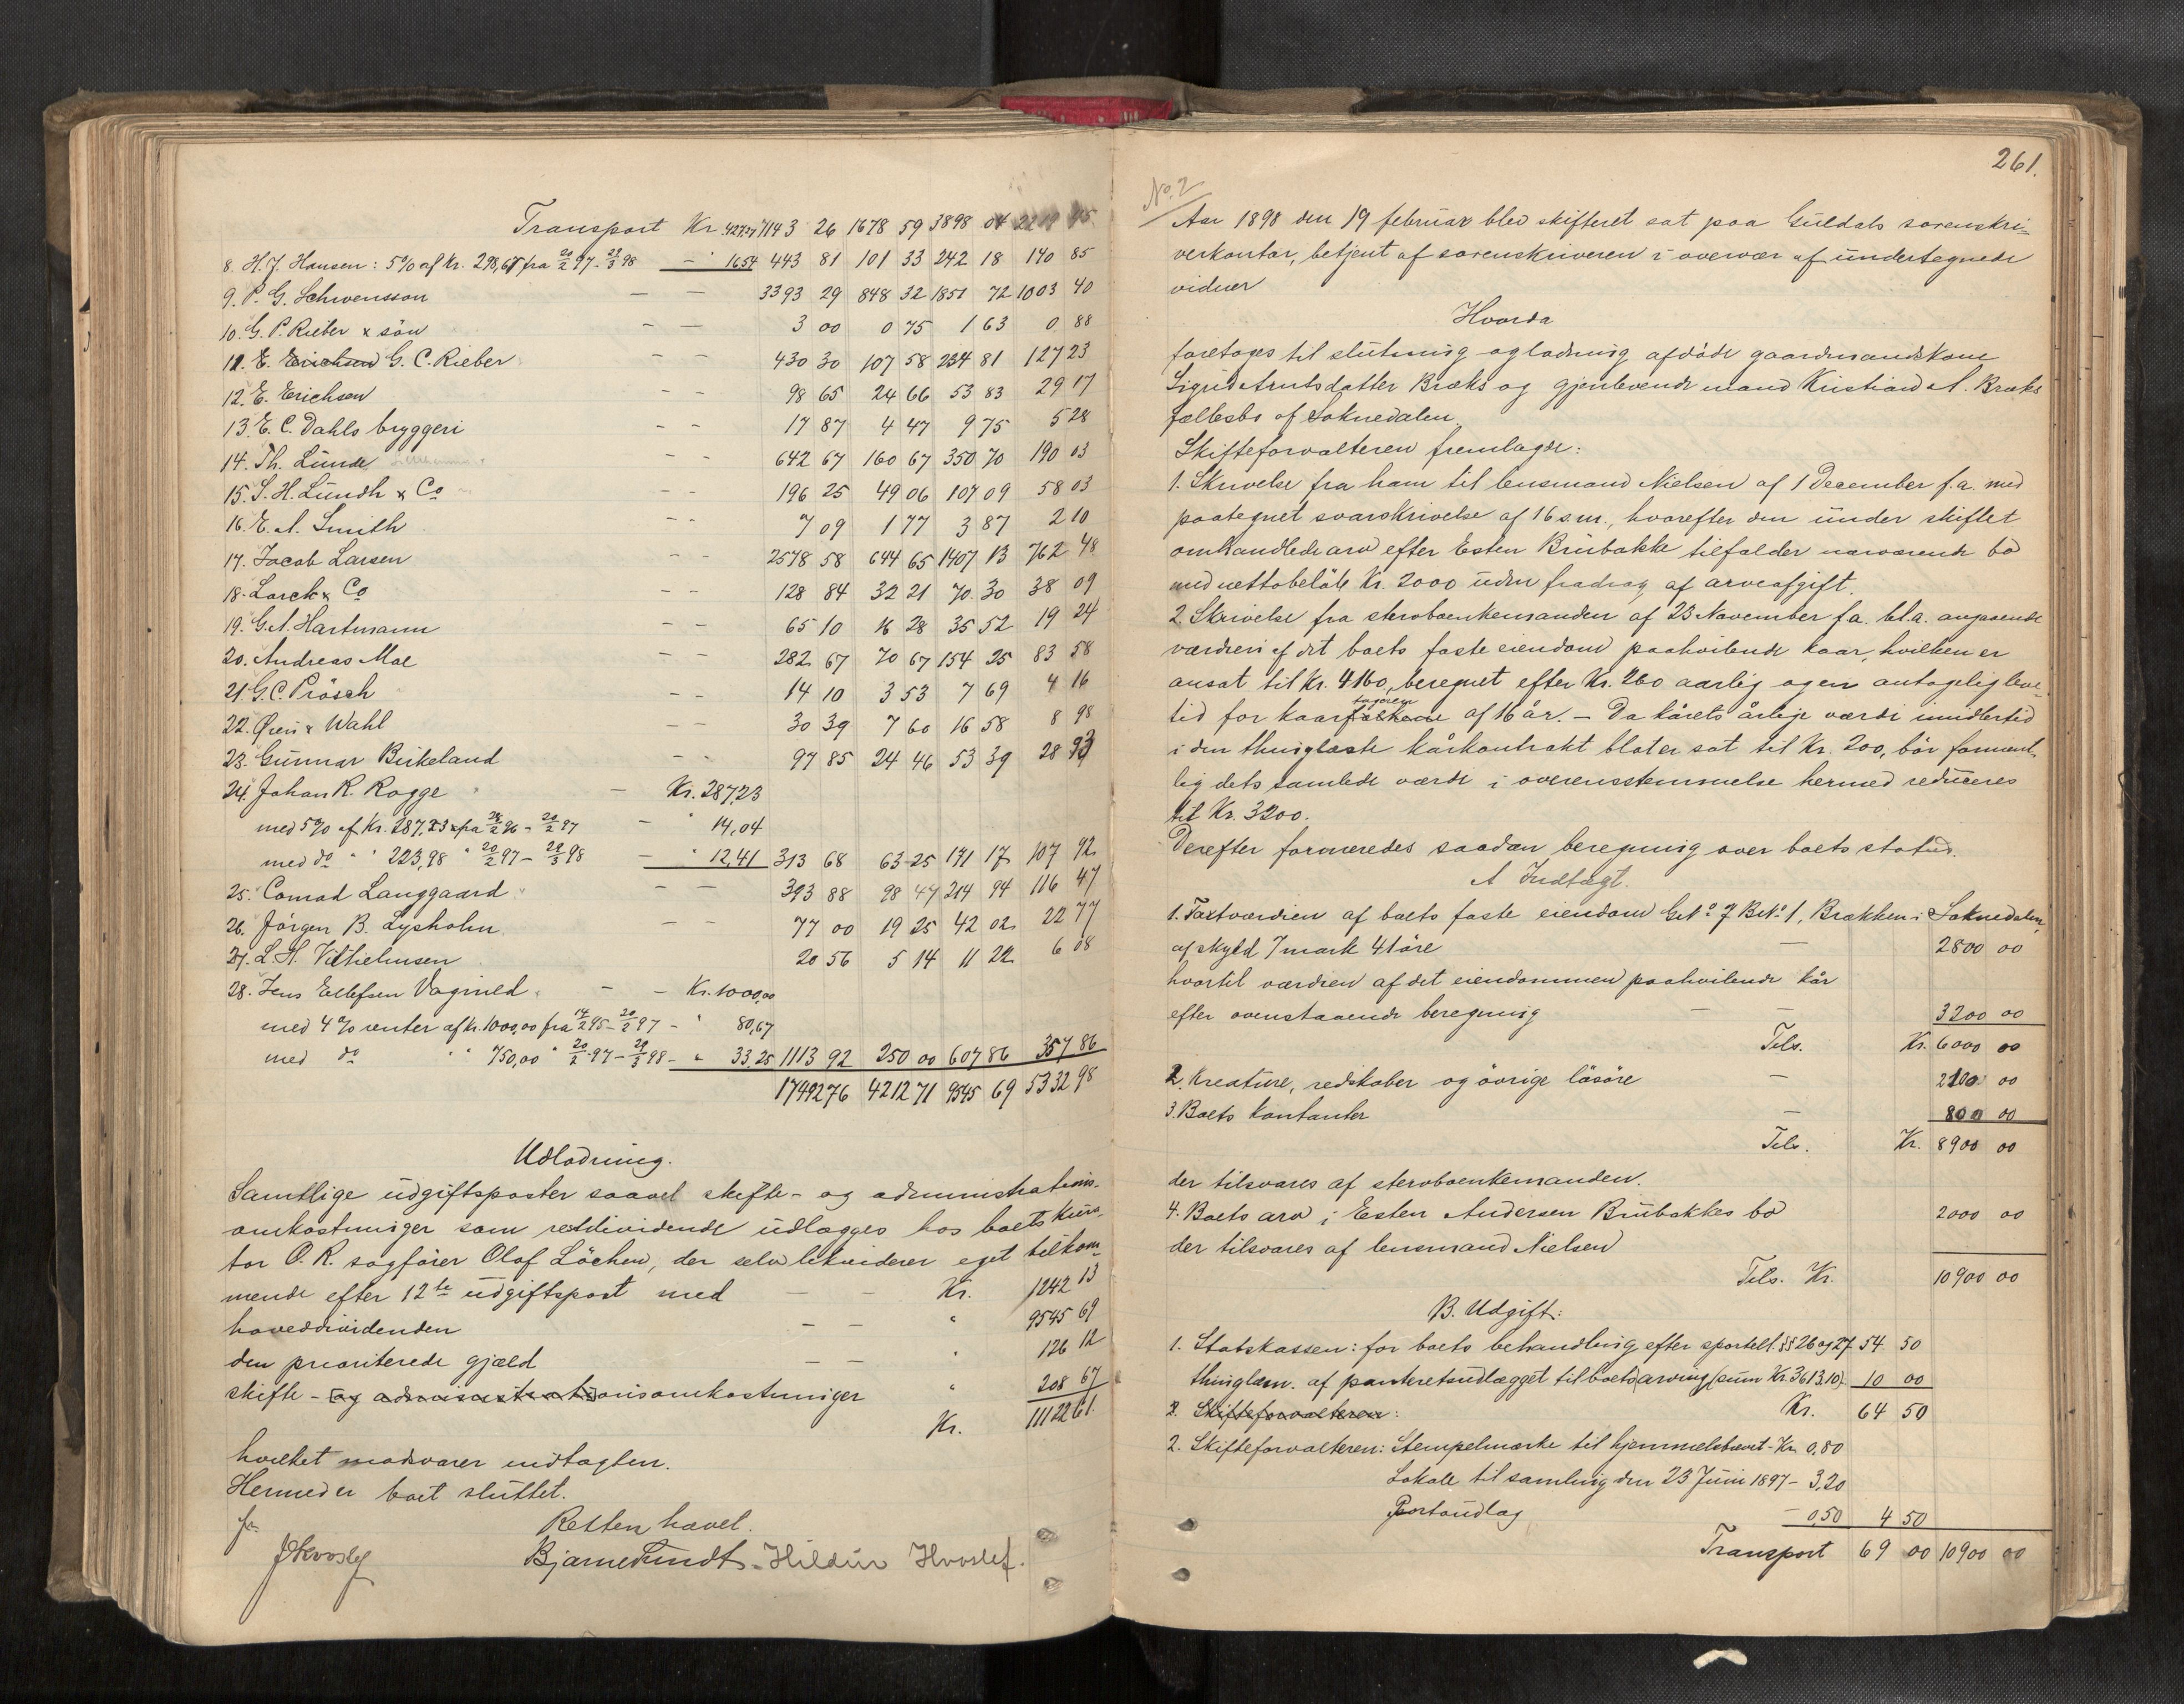 Transport Kr. 427,27 7143 26 1678 59 3898 04
8. H. J. Hansen: 5% af Kr. 298,67 fra 20/2 97 - 29/3 98 — " 16,54 443 81 101 33 242 18 140 85
9. P. G. Schwensson — — 3393 29 848 32 1851 72 1003 40
10. G. P. Rieber & sön — — 3 00 0 75 1 63 0 88
11. E. Erichsen G. C. Rieber — — 430 30 107 58 234 81 127 23
12. E. Erichsen — 98 65 24 66 53 83 29 17
13. E. C. Dahls bryggeri — — 17 87 4 47 9 75 5 28
14. Th. Lunde — — 642 67 160 67 350 70 190 03
15. S. H. Lundh & Co — — 196 25 49 06 107 09 58 03
16. E. A. Smith — — 7 09 1 77 3 87 2 10
17. Jacob Larsen — — 2578 58 644 65 1407 13 762 48
18. Lorck & Co — — 128 84 32 21 70 30 38 09
19. G. A. Hartmann — — 65 10 16 28 35 52 19 24
20. Andreas Moe — — 282 67 70 67 154 25 83 58
21. G. C. Prösch — — 14 10 3 53 7 69 4 16
22. Øien & Wahl — — 30 39 7 60 16 58 8 98
23. Gunnar Birkeland — — 97 85 24 46 53 39 28 93
24. Johan R. Rogge — Kr. 287,23
med 5% af Kr. 287,23 fra 28/2 96 - 20/2 97 — " 14,04
med do " " 223,98 " 20/2 97 - 29/3 98 — " 12,41 313 68 63 25 171 17 107 92
25. Conrad Langgaard — — 393 88 98 47 214 94 116 47
26. Jörgen B. Lysholm — — 77 00 19 25 42 02 22 77
27. L. H. Vilhelmsen 20 56 5 14 11 22 6 08
28. Jens Ellefsen Vagnild — — Kr. 1000,00
med 4% renter af Kr. 1000,00 fra 14/2 95 - 20/2 97 - " 80,67
med do " " 750,00 " 20/2 97 - 29/3 98 - " 33,25 1113 92 250 00 607 86 357 86
17492 76 4212 71 9545 69 5332 98
Udlodning.
Samtlige udgiftsposter saavel skifte- og administrations-
omkostninger som restdividende udlægges hos boets kura-
tor O. R. sagförer Olaf Löchen, der selv likviderer eget tilkom-
mende efter 12te udgiftspost med — — Kr. 1242 13
hoveddividenden — — " 9545 69
den prioriterede gjæld — — " 126 12
skifte- og administrationsomkostninger " 208 67
Kr. 11122 61
hvilket modsvarer indtægten.
Hermed er boet sluttet.
Retten hævet.
JHvoslef Bjarne Tundt. Hildur Hvoslef.
261.
No. 2
Aar 1898 den 19 februar blev skifteret sat paa Guldals sorenskri-
verkontor, betjent af sorenskriveren i overvær af undertegnede
vidner
Hvorda
foretoges til slutning og lodning afdøde gaardmandskone
Sigrid Arntsdatter Bræks og gjenlevende mand Kristian A. Bræks
fællesbo af Soknedalen.
Skifteforvalteren fremlagde:
1. Skrivelse fra ham til lensmand Nielsen af 1 December f. a. med
paategnet svarskrivelse af 16 s. m., hvorefter den under skiftet
omhandlede arv efter Esten Brubakk tilfalder nærværende bo
med nettobeløb Kr. 2000 uden fradrag af arveafgift.
2. Skrivelse fra stervboenkemanden af 23 November f. a. bl. a. angaaende
værdien af det boets faste eiendom paahvilende kaar, hvilken er
ansat til Kr. 4160, beregnet efter Kr. 260 aarlig og en antagelig leve-
tid for kaarfolkene tagerene af 16 år. — Da kårets årlige værdi imidlertid
i den thinglæste kårkontrakt blot er sat til Kr. 200, bör forment-
lig dets samlede værdi i overensstemmelse hermed reduceres
til Kr. 3200.
Derefter formeredes saadan beregning over boets status.
A Indtægt.
1. Taxtværdien af boets faste eiendom Gno. 7 Bno. 1, Brækken i Soknedalen,
af skyld 7 mark 41 öre — 2800 00
hvortil værdien af det eiendommen paahvilende kår
efter ovenstaaende beregning — — 3200 00
Tils. Kr. 6000 00
2. Kreature, redskaber og övrige lösöre — 2100 00
3. Boets kontanter — 800 00
Tils. Kr. 8900 00
der tilsvares af stervboenkemanden.
4. Boets arv i Esten Andersen Brubakkes bo 2000 00
der tilsvares af lensmand Nielsen
Tils. Kr. 10900 00
B. Udgift:
1. Statskassen: for boets behandling efter sportell. §§ 26 og 27 54 50
thinglæsn. af panteretsudlægget til boets arving (sum Kr. 3613,10) 10 00
2. Skifteforvalteren: Kr. 64 50
2. Skifteforvalteren: Stempelmærke til hjemmelsbrevet - Kr. 0,80
Lokale til samling den 23 Juni 1897 - 3,20
Portoudlæg — 0,50 4 50
Transport 69 00 10900 00